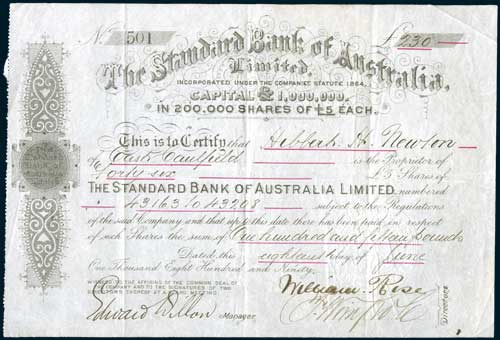 No 501 £ 230
The Standard Bank of Australia,
Limited.
INCORPORATED UNDER THE COMPANIES STATUTE 1864.
CAPITAL £1,000,000.
IN 200,000 SHARES OF £5 EACH.
This is to Certify that Hibbert H. Newton
of East Caulfield is the Proprietor of
Forty six £5 Shares of
THE STANDARD BANK OF AUSTRALIA LIMITED numbered
43163 to 43208 subject to the Regulations
of the said Company and that up to this date there has been paid in respect
of such Shares the sum of One hundred and fifteen pounds
Dated this eighteenth day of June
One Thousand Eight Hundred and Ninety.
WITNESS TO THE AFFIXING OF THE COMMON SEAL OF
THE COMPANY AND TO THE SIGNATURES OF TWO
DIRECTORS THERETO AT A BOARD MEETING
William Rose
Edward Dillon Manager
Directors